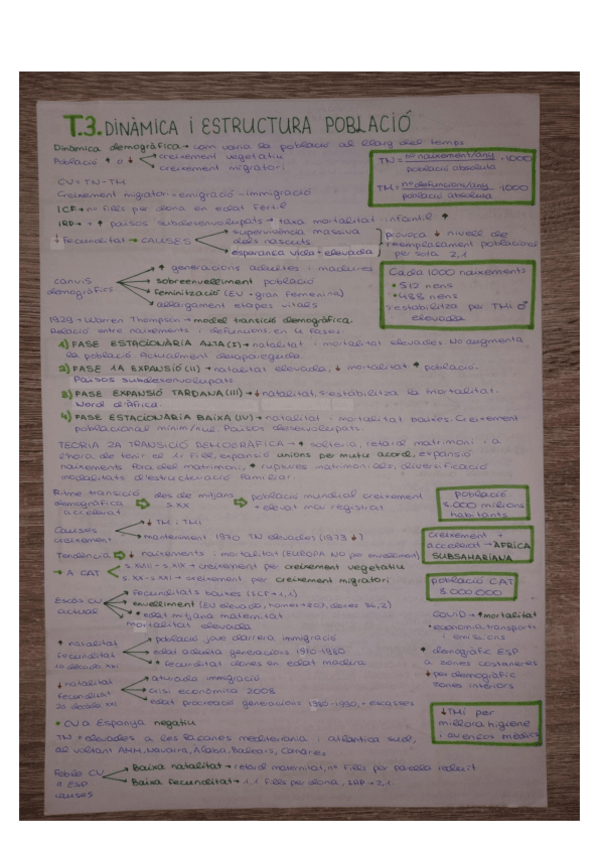 T.3. DINÀMICA i ESTRUCTURA POBLACIÓ
Dinàmica demogràfica → com varia la població al llarg del temps.
Població ↑ o ↓ creixement vegetatiu
creixement migratori
TN = nº naixement/any · 1000
població absoluta
TM = nº defuncions/any · 1000
població absoluta
CV = TN - TM
Creixement migratori = emigració - immigració
ICF → nº fills per dona en edat fèrtil
països subdesenvolupats → taxa mortalitat infantil ↑
↓ Fecunditat → CAUSES
supervivència massiva
dels nascuts
esperança vida + elevada
provoca ↓ nivell de
reemplaçament poblacional
per sota 2,1
canvis
demogràfics
↑ generacions adultes i madures
sobreenvelliment població
feminització (EV + gran femenina)
allargament etapes vitals
Cada 1000 naixements
• 512 nens
• 488 nens
s'estabilitza per TMi ♂
elevada
1929 → Warren Thompson → model transició demogràfica.
Relació entre naixements i defuncions en 4 fases.
1) FASE ESTACIONÀRIA ALTA (I) → natalitat i mortalitat elevades. No augmenta
la població. Actualment desapareguda.
2) FASE 1A EXPANSIÓ (II) → natalitat elevada, ↓ mortalitat ↑ població.
Països subdesenvolupats.
3) FASE EXPANSIÓ TARDANA (III) → ↓ natalitat, s'estabilitza la mortalitat.
Nord d'Àfrica.
4) FASE ESTACIONÀRIA BAIXA (IV) → natalitat i mortalitat baixes. Creixement
poblacional mínim/nul. Països desenvolupats
TEORIA 2A TRANSICIÓ DEMOGRÀFICA → ↑ solteria, retard matrimoni i a
l'hora de tenir el 1r fill, expansió unions per mutu acord, expansió
naixements fora del matrimoni, ↑ ruptures matrimonials, diversificació
modalitats d'estructuració familiar.
Ritme transició
demogràfica
accelerat
des de mitjans
s.XX
població mundial creixement
+ elevat mai registrat
població
8.000 milions
habitants
Causes
creixement
↓ TM i TMi
manteniment 1970 TN elevades (1973 ↓)
creixement +
accelerat → ÀFRICA
SUBSAHARIANA
Tendència ↓ naixements i mortalitat (EUROPA NO per envelliment)
→ A CAT
s. XVIII - s. XIX → creixement per creixement vegetatiu
s. XX - s. XXI → creixement per creixement migratori
població CAT
8.000.000
Escàs CV
actual
fecunditats baixes (ICF → 1,1)
envelliment (EV elevada, homes → 80, dones 86,2)
↑ edat mitjana maternitat
mortalitat elevada
COVID → ↑ mortalitat
↓ economia, transports
i emissions
↑ natalitat
fecunditat
1a dècada XXI
població jove darrera immigració
edat adulta generacions 1960-1980
↑ fecunditat dones en edat madura
↑ demogràfic ESP
a zones costaneres
↓ per demogràfic
zones interiors
↓ natalitat
fecunditat
2a dècada XXI
aturada immigració
crisi econòmica 2008
edat procreació generacions 1980-1990, + escasses
• CV a Espanya negatiu
↓ TMi per
millora higiene
i avenços mèdics
TN + elevades a les façanes mediterrània i atlàntica sud,
al voltant AMM, Navarra, Àlaba, Balears, Canàries
Feble CV
a ESP
causes
Baixa natalitat → retard maternitat, nº fills per parella reduït
Baixa fecunditat → 1,1 fills per dona